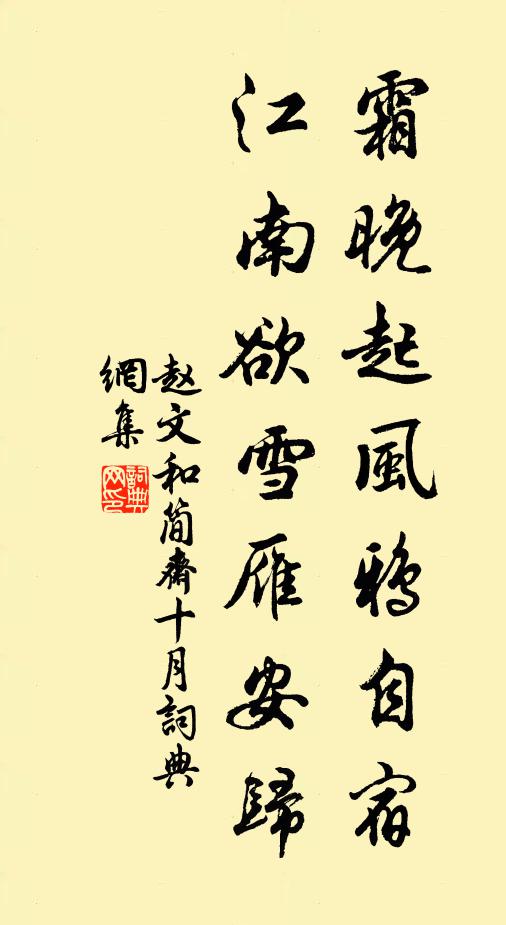 霜晚起風鴉自宿
江南欲雪雁安歸
赵文和简斋十月詞典
網集
詞典
网印